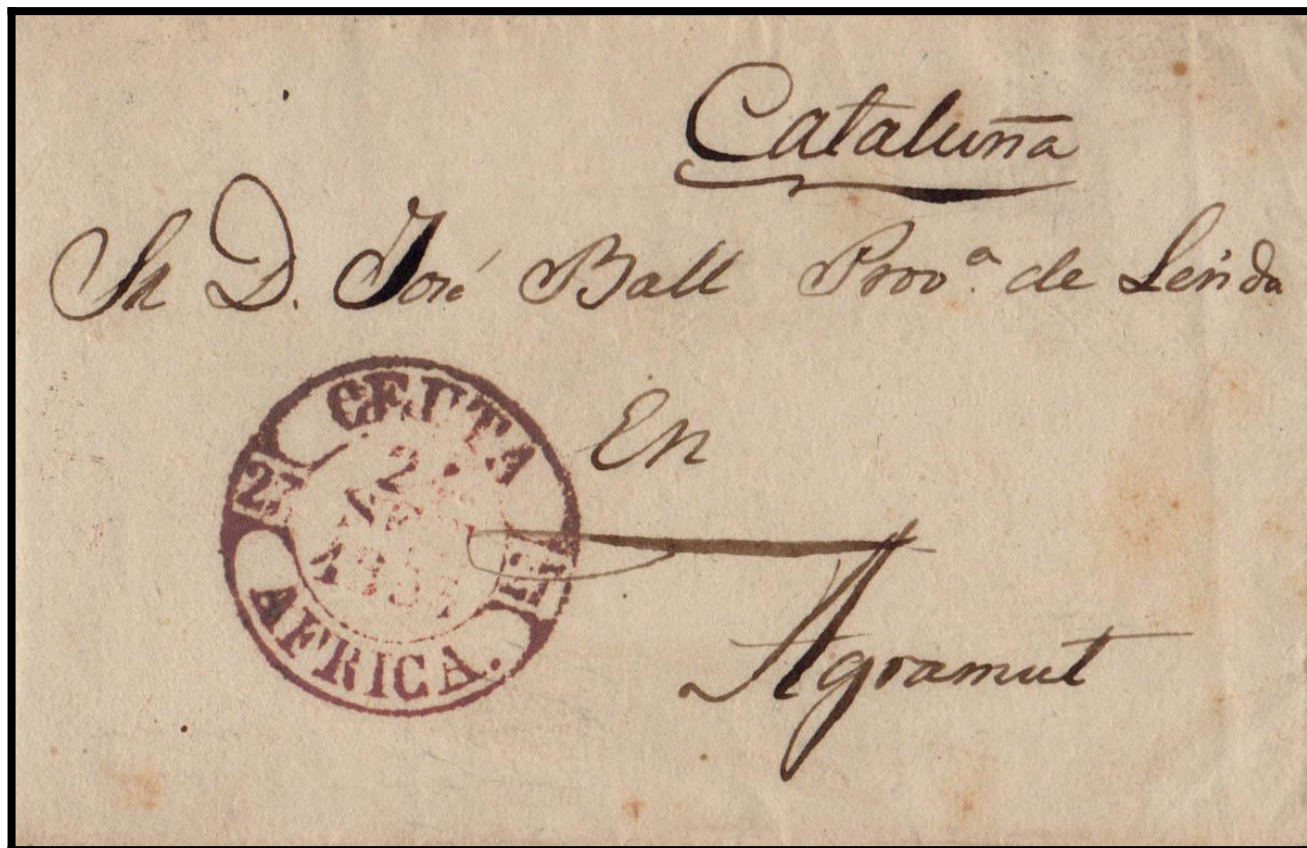 Cataluña
Sr D. José Ball Provª. de Lerida
En
Agramut
CEUTA
27
2
AFRICA.